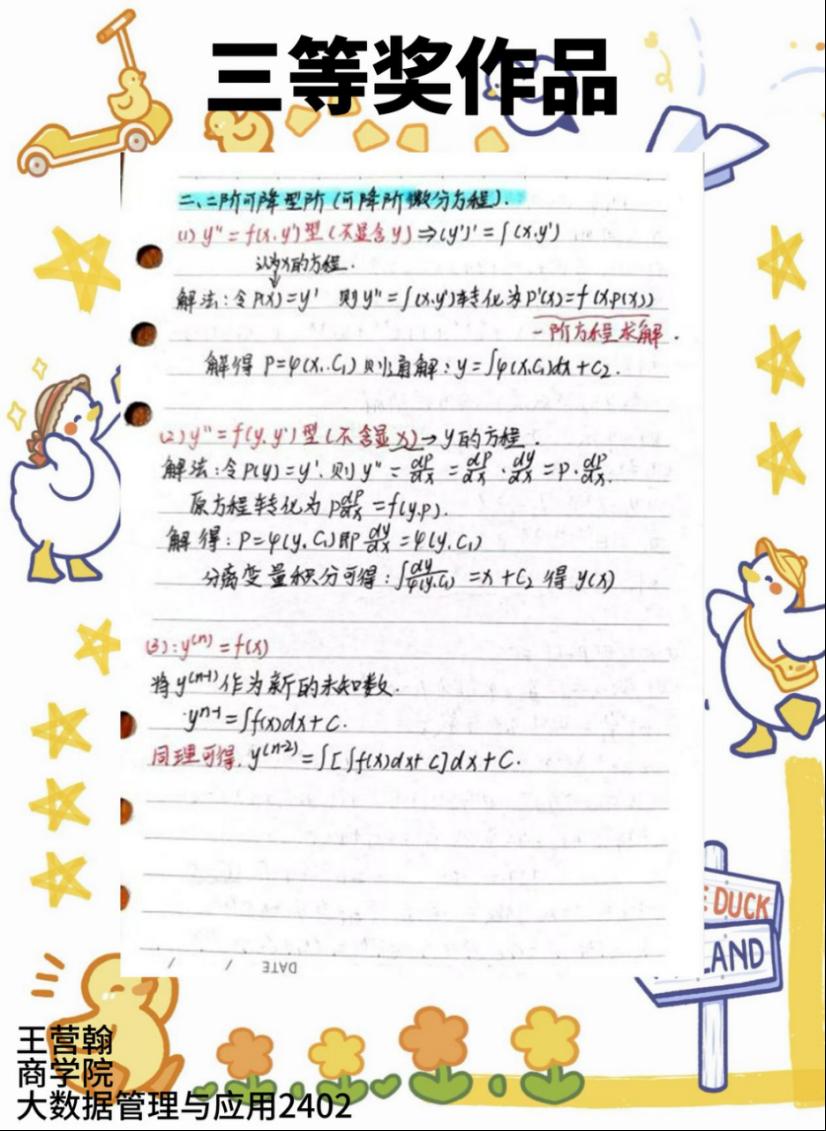 三等奖作品
二、二阶可降型阶(可降阶微分方程).
(1) y''=f(x,y')型(不显含y)⇒(y')'=∫(x,y')
认为x的方程.
解法:令P(x)=y' 则y''=∫(x,y')转化为P'(x)=f(x,p(x))
一阶方程求解.
解得 P=φ(x,C₁)则通解:y=∫φ(x,C₁)dx+C₂.
(2) y''=f(y,y')型(不含显x)→y的方程.
解法:令P(y)=y'.则y''=dp/dx=dp/dx·dy/dx=P·dp/dx.
原方程转化为 P dp/dx=f(y,p).
解得:P=φ(y,C₁)即 dy/dx=φ(y,C₁)
分离变量积分可得:∫dy/φ(y,C₁)=x+C₂ 得 y(x)
(3):y⁽ⁿ⁾=f(x)
将y⁽ⁿ⁻¹⁾作为新的未知数.
yⁿ⁻¹=∫f(x)dx+C.
同理可得.y⁽ⁿ⁻²⁾=∫[∫f(x)dx+C]dx+C.
DATE / /
E DUCK
LAND
王营翰
商学院
大数据管理与应用2402